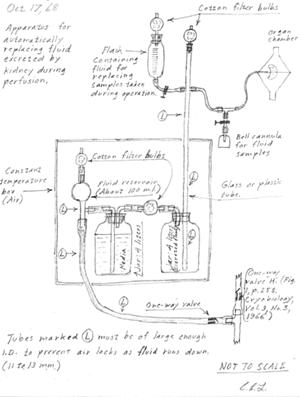 Oct 17, 68
Apparatus for
automatically
replacing fluid
excreted by
kidney during
perfusion.
Cotton filter bulbs
Flask
Containing
fluid for
replacing
samples taken
during operation.
Organ
chamber
L
Bell cannula
for fluid
samples
Constant
temperature
box
(Air)
Cotton filter bulbs
Fluid reservoir
(About 100 ml)
Glass or plastic
tube.
L
L
L
L
L
Media
Jar 4 liters
Jar 4 liters
One-way valve
One-way
valve H. (Fig.
1, p. 252,
Cryobiology,
Vol. 3, No. 3,
1966)
Tubes marked L must be of large enough
I.D. to prevent air locks as fluid runs down.
(11 to 13 mm.)
NOT TO SCALE
C.A.L.